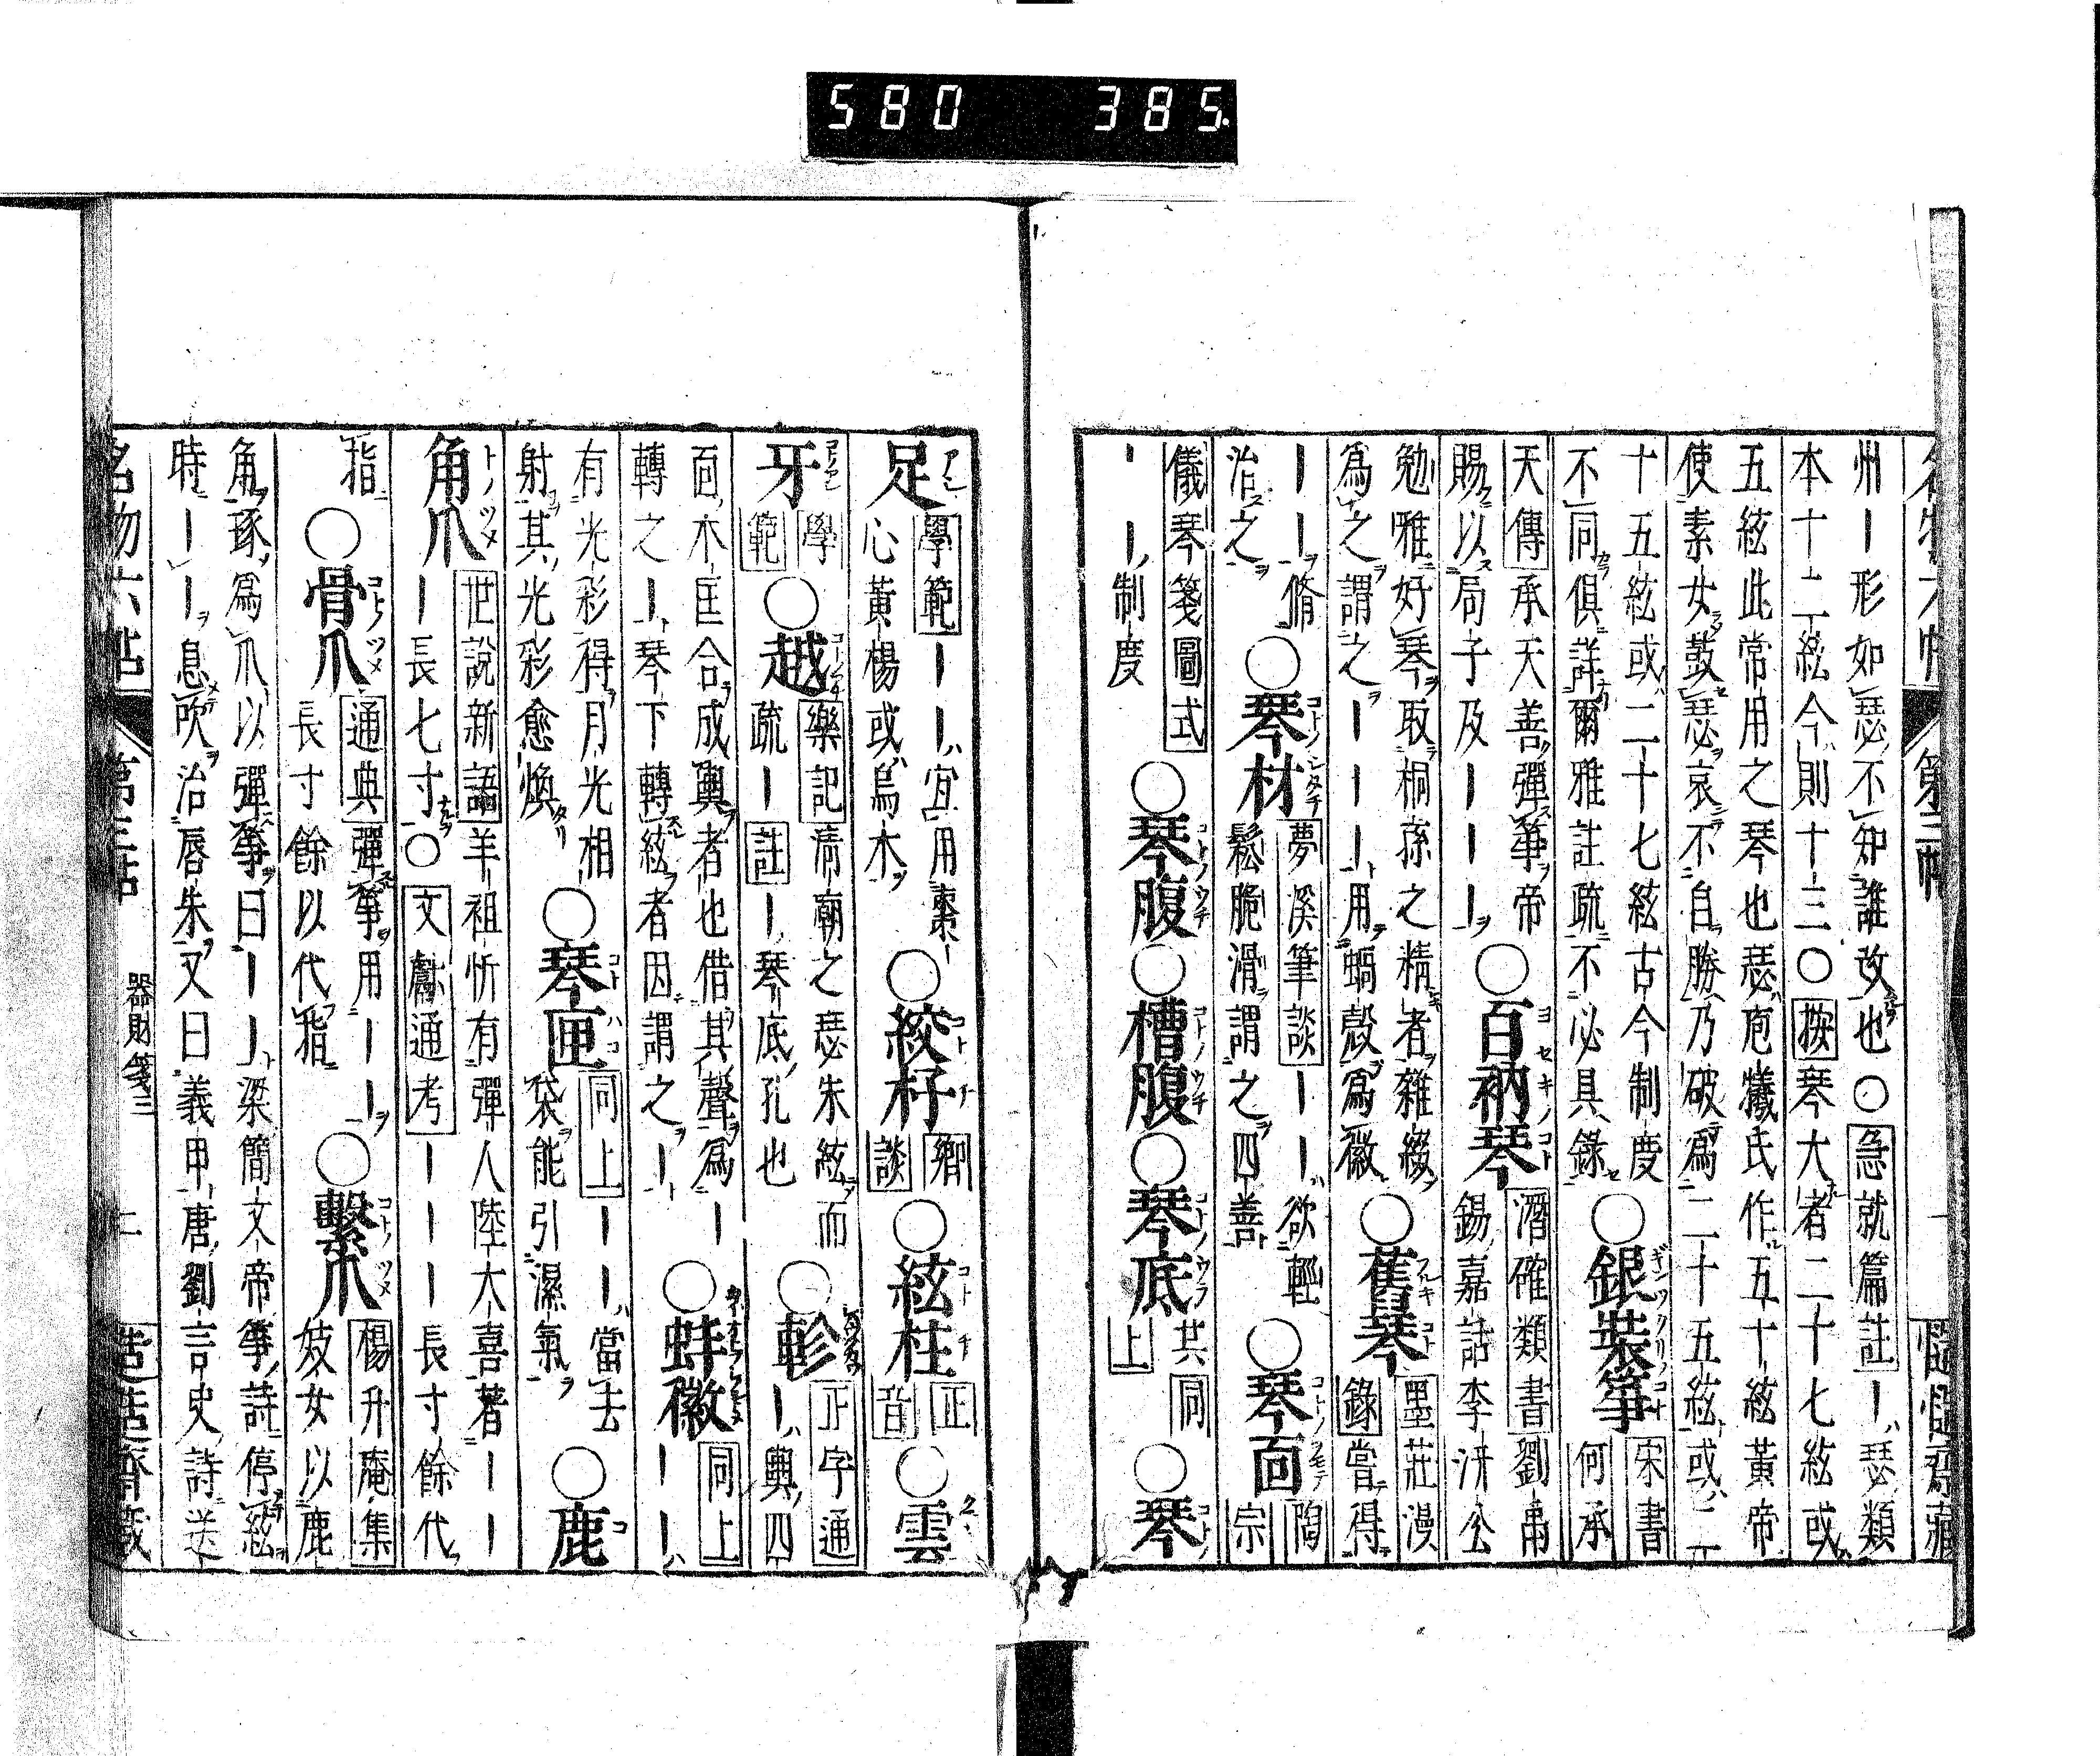 580 385
州｜形如瑟不知誰改也○急就篇註｜瑟類
本十二絃今則十三○按琴大者二十七絃或
五絃此常用之琴也瑟庖犧氏作五十絃黃帝
使素女鼓瑟哀不自勝乃破爲二十五絃或
十五絃或二十七絃古今制度
不同俱詳爾雅註疏不必具錄
○銀裝箏 ギンツクリノコト
宋書何承
天傳承天善彈箏帝
賜以局子及｜｜｜
○百衲琴 ヨセキノコト
潛確類書劉禹
錫嘉話李汧公
勉雅好琴取桐孫之精者雜綴
爲之謂之｜｜｜用蝸殼爲徽
○舊琴 フルキコト
墨莊漫
錄嘗得
｜｜脩
治之
○琴材
夢溪筆談｜｜欲輕
鬆脆滑謂之四善
○琴面 コトノヲモテ
陶
宗
儀琴箋圖式
｜｜制度
○琴腹 コトノウチ
○槽腹 コトノウチ
○琴底 コトノウラ
共同
上
○琴 コトノ
足 アシ
學範｜｜宜用棗
心黃楊或烏木
○絞杍 コトヂ
鄕
談
○絃柱 コトヂ
正
音
○雲
牙
學
範
○越
樂記淸廟之瑟朱絃而
疏｜註｜琴底孔也
○軫
正字通
｜輿四
面木匡合成輿者也借其聲爲｜
轉之｜琴下轉絃者因謂之｜
○蚌徽
同上
｜｜
有光彩得月光相
射其光彩愈煥
○琴匣 コトハコ
同上｜｜當去
袋能引濕氣
○鹿 コ
角爪 トノツメ
世說新語羊祖忻有彈人陸大喜著｜｜
｜長七寸○文獻通考｜｜｜長寸餘代
指
○骨爪 コトノツメ
通典彈箏用｜｜
長寸餘以代指
○繫爪 コトノツメ
楊升庵集
妓女以鹿
角琢爲爪以彈箏曰｜｜梁簡文帝箏詩停絃
時｜｜息吹治唇朱又曰義甲唐劉言史詩送
名物六帖 第三帖 器財箋三 二